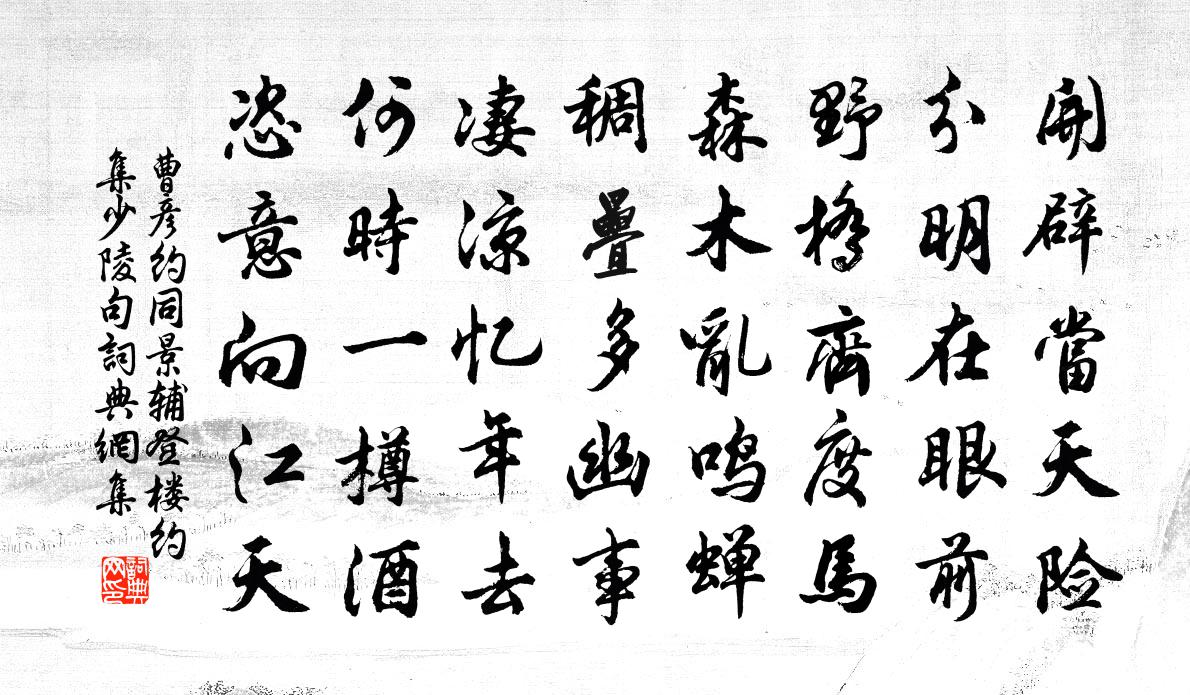 開辟當天险
分明在眼前
野橋齊度馬
森木亂鸣蝉
稠疊多幽事
凄凉忆年去
何時一樽酒
恣意向江天
曹彦约同景辅登楼约
集少陵句詞典網集
詞典网印